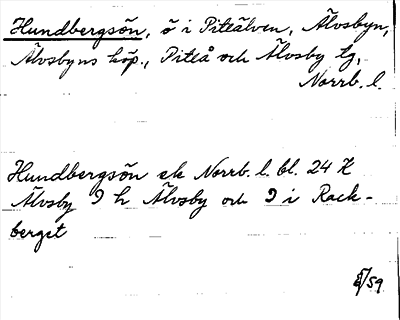 Hundbergsön, ö i Piteälven, Älvsbyn,
Älvsbyns köp., Piteå och Älvsby tg,
Norrb. l.
Hundbergsön ek Norrb. l. bl. 24 K
Älvsby 9 h Älvsby och 9 i Rack-
berget
/59